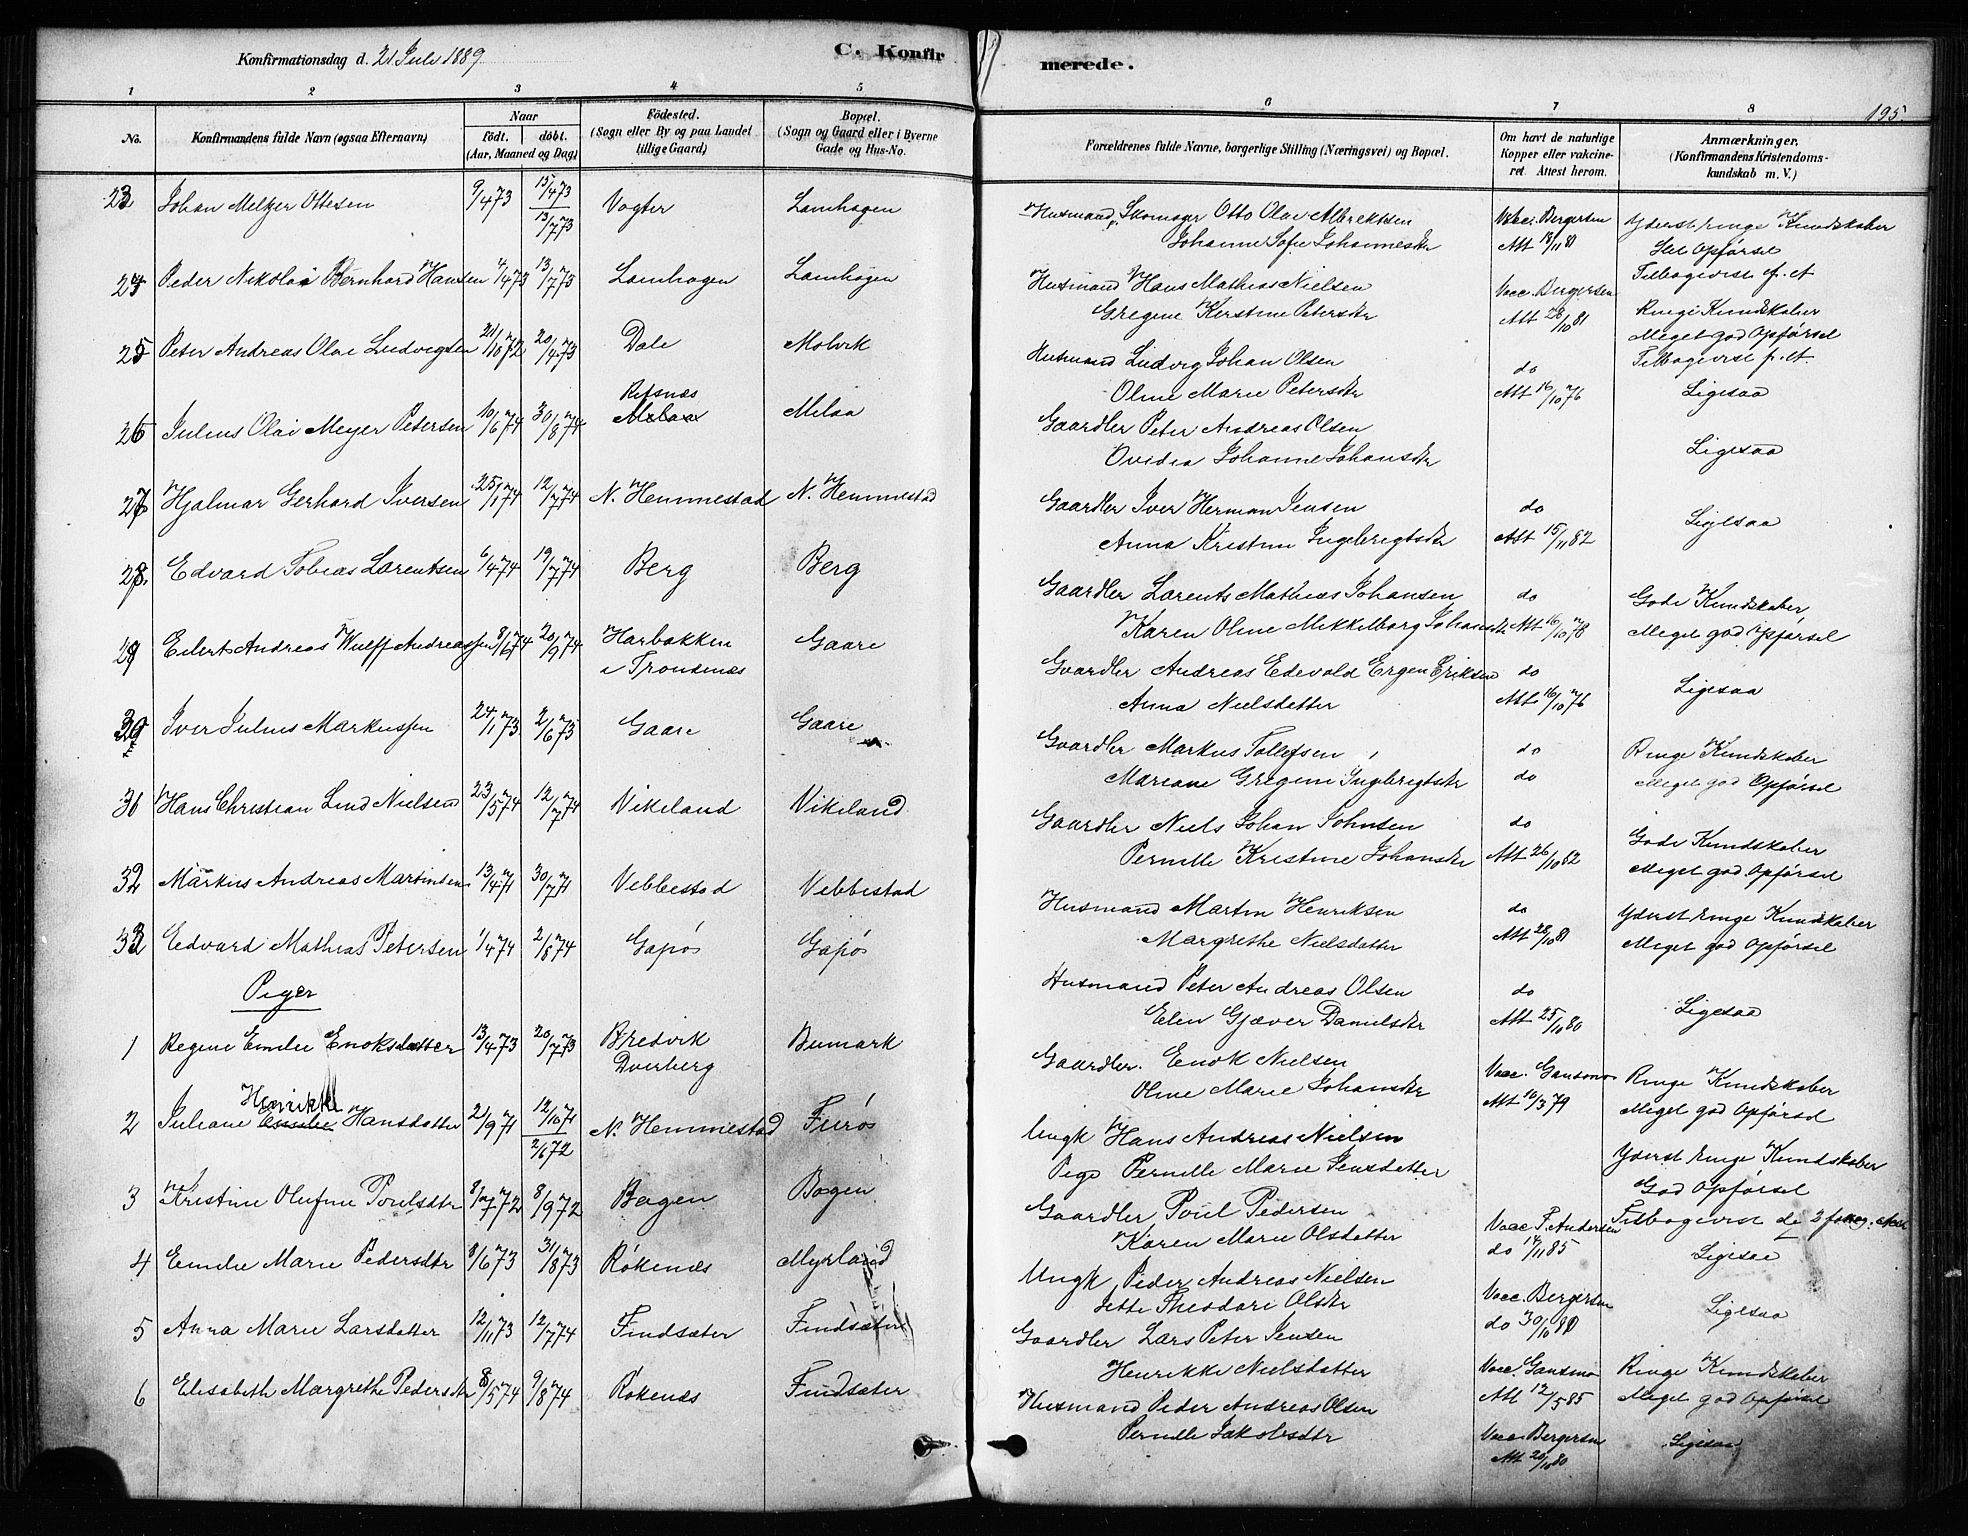 Konfirmationsdag d. 21 Juli 1889
C. Konfirmerede.
195
1 2 3 4 5 6 7 8
No.
Konfirmandens fulde Navn (ogsaa Efternavn)
Naar
født. døbt.
(Aar, Maaned og Dag)
Fødested.
(Sogn eller By og paa Landet
tillige Gaard)
Bopæl.
(Sogn og Gaard eller i Byerne
Gade og Hus-No.
Forældrenes fulde Navne, borgerlige Stilling (Næringsvei) og Bopæl.
Om havt de naturlige
Kopper eller vakcine-
ret. Attest herom.
Anmærkninger.
(Konfirmandens Kristendoms-
kundskab m. V.)
23 Johan Meltzer Ottesen 9/4 73 15/4 73 Vogter Lamhagen Husmand, Skomager Otto Olai Albrektsen Vacc. Bergersen Yderst ringe Kundskaber
13/7 73 Johanne Sofie Johannesdr Att 18/11 81 Slet Opførsel
24 Peder Nikolai Bernhard Hansen 4/4 73 13/7 73 Lamhagen Lamhagen Husmand Hans Mathias Nielsen Vacc. Bergersen Tilbagevist f. et
Gregine Kerstine Petersdr Att 28/10 81 Ringe Kundskaber
Meget god Opførsel
25 Peter Andreas Olai Ludvigsen 21/10 72 20/4 73 Dale Molvik Husmand Ludvig Johan Olsen do Tilbagevist f. et.
Oline Marie Petersdr Att 16/10 76 Ligesaa
26 Julius Olai Meyer Petersen 10/6 74 30/8 74 Refsnæs Milaa Milaa Gaardbr Peter Andreas Olsen
Ovidia Johanne Johansdr Ligesaa
27 Hjalmar Gerhard Iversen 25/1 74 12/7 74 N. Hemmestad N. Hemmestad Gaardbr Iver Herman Jensen do
Anna Kristine Ingebrigtsdr Att 15/11 82 Ligesaa
28. Edvard Tobias Lorentsen 6/4 74 19/7 74 Berg Berg Gaardbr Lorents Mathias Johansen do Gode Kundskaber
Karen Oline Mikkelborg Johansdr Att 16/10 78 Meget god Opførsel
29 Eilert Andreas Wulff Andreassen 8/6 74 20/9 74 Harbakken Gaare Gaardbr Andreas Edevold Ergen Eriksen do
i Trondenæs Anna Nielsdatter Att 16/10 76 Ligesaa
30 Iver Julius Markussen 24/1 73 2/6 73 Gaare Gaare Gaardbr Markus Tollefsen do Ringe Kundskaber
Mariane Gregine Ingebrigtsdr do Meget god Opførsel
31 Hans Christian Lind Nielsen 23/5 74 12/7 74 Vikeland Vikeland Gaardbr Niels Johan Johnsen do Gode Kundskaber
Pernille Kristine Johansdr Att 26/10 82 Meget god Opførsel
32 Markus Andreas Martinsen 13/4 71 30/7 71 Vebbestad Vebbestad Husmand Martin Henriksen do Yderst ringe Kundskaber
Margrethe Nielsdatter Att 28/10 81 Meget god Opførsel
33 Edvard Mathias Petersen 1/4 74 2/8 74 Gapøs Gapøs Husmand Peter Andreas Olsen do
Elen Gjæver Danielsdr Att 25/10 80 Ligesaa
Piger
1 Regine Emilie Enoksdatter 13/4 73 20/7 73 Bredvik Bumark Gaardbr. Enok Nielsen Vacc. Gansmo Ringe Kundskaber
Dverberg Oline Marie Johansdr Att 16/3 79 Meget god Opførsel
2 Juliane Emilie Henrikke Hansdatter 21/9 71 12/10 71 N. Hemmestad Furøs Ungk Hans Andreas Nielsen Yderst ringe Kundskaber
2/6 72 Pige Pernille Marie Jensdatter God Opførsel
3 Kristine Olufine Poulsdtr 8/7 72 8/9 72 Bogen Bogen Gaardbr Poul Pedersen Vacc F. Andersen Tilbagevist de 2 foreg. Aar
Karen Marie Olsdatter do 14/11 85 Ligesaa
4 Emilie Marie Pedersdtr 8/6 73 31/8 73 Røkenæs Myrland Ungk Peder Andreas Nielsen Vacc. Bergersen
Jette Theodore Olsdr do 30/10 81 Ligesaa
5 Anna Marie Larsdatter 12/11 73 12/7 74 Findsæter Findsæter Gaardbr Lars Peter Jensen Vacc. Gansmo Ringe Kundskaber
Henrikke Nielsdatter Att 12/5 85 Meget god Opførsel
6 Elisabeth Margrethe Pedersdr 8/5 74 9/8 74 Røkenæs Findsæter Husmand Peder Andreas Olsen Vacc. Bergersen
Pernille Jakobsdtr Att 20/10 80 Ligesaa